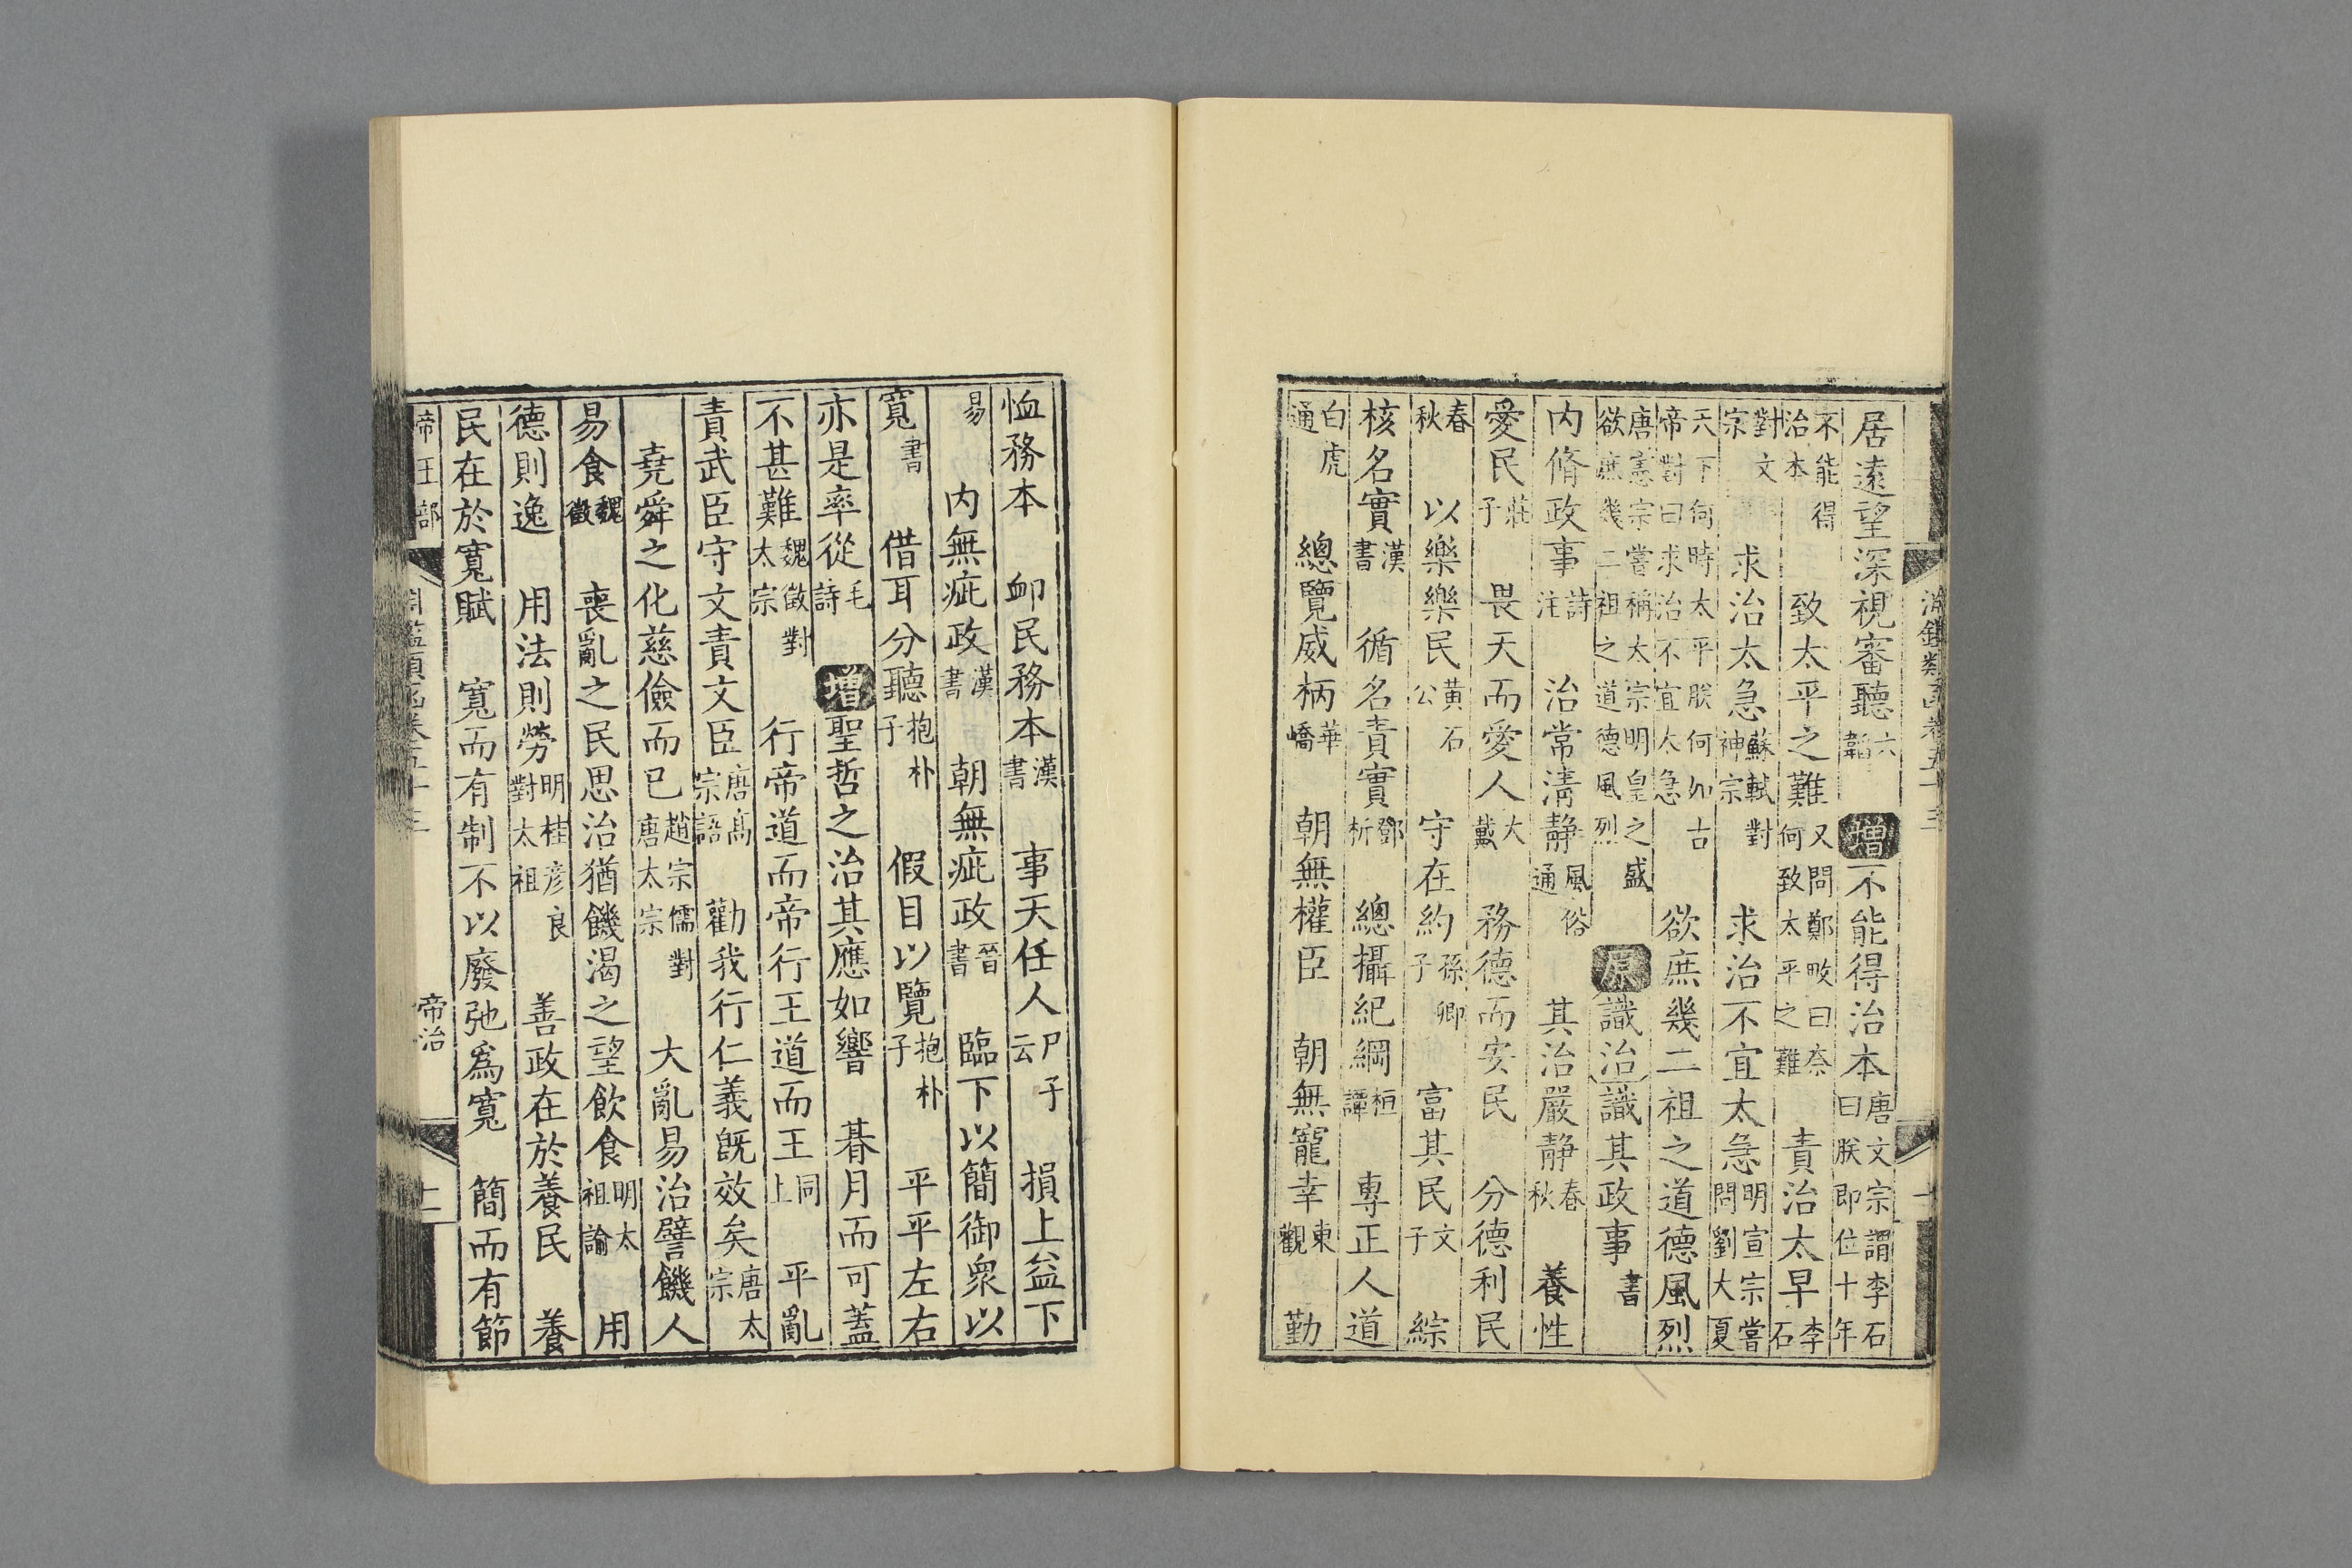 淵鑑類函卷五十三
居遠望深視審聽六韜 增不能得治本唐文宗謂李石曰朕即位十年
不能得治本 致太平之難又問鄭畋曰奈何致太平之難 責治太早李石
對文宗 求治太急蘇軾對神宗 求治不宜太急明宣宗嘗問劉大夏
天下何時太平朕何如古帝對曰求治不宜太急 欲庶幾二祖之道德風烈
唐憲宗嘗稱太宗明皇之盛欲庶幾二祖之道德風烈 原識治識其政事書
內脩政事詩注 治常清靜風俗通 其治嚴靜春秋 養性
愛民莊子 畏天而愛人大戴 務德而安民 分德利民
春秋 以樂樂民黃石公 守在約孫卿子 富其民文子 綜
核名實漢書 循名責實鄧析 總攝紀綱桓譚 專正人道
白虎通 總覽威柄華嶠 朝無權臣 朝無寵幸東觀 勤
恤務本 卹民務本漢書 事天任人尸子云 損上益下
易 內無疵政漢書 朝無疵政晉書 臨下以簡御衆以
寬書 借耳分聽抱朴子 假目以覽抱朴子 平平左右
亦是率從毛詩 增聖哲之治其應如響 朞月而可蓋
不甚難魏徵對太宗 行帝道而帝行王道而王同上 平亂
責武臣守文責文臣唐高宗語 勸我行仁義旣效矣唐太宗
堯舜之化慈儉而已趙宗儒對唐太宗 大亂易治譬饑人
易食魏徵 喪亂之民思治猶饑渴之望飲食明太祖諭 用
德則逸 用法則勞明桂彦良對太祖 善政在於養民 養
民在於寬賦 寬而有制不以廢弛爲寬 簡而有節
帝王部 淵鑑類函卷五十三 帝治 十一